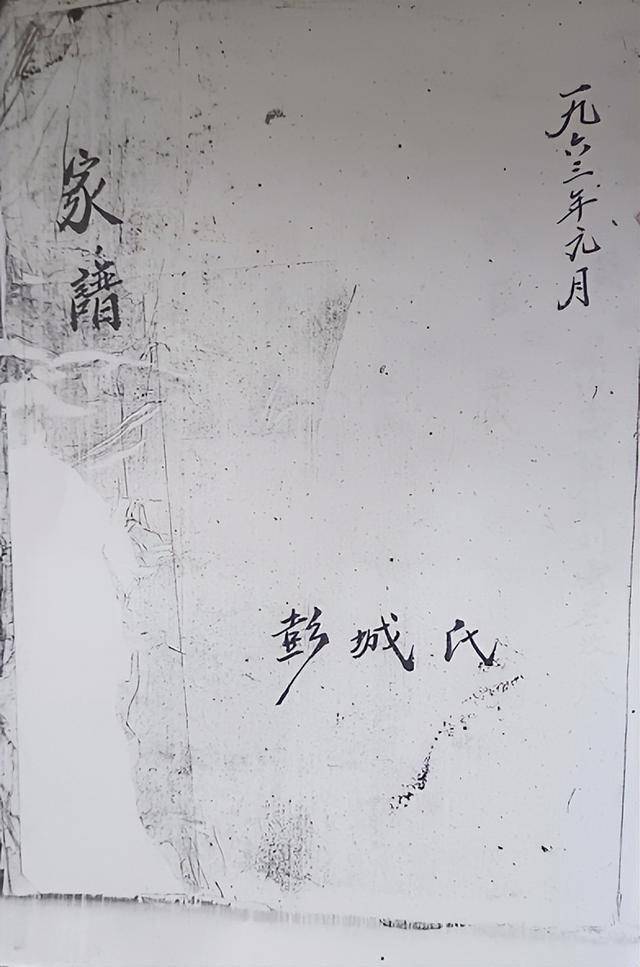 一九六三年元月
家譜
彭城氏